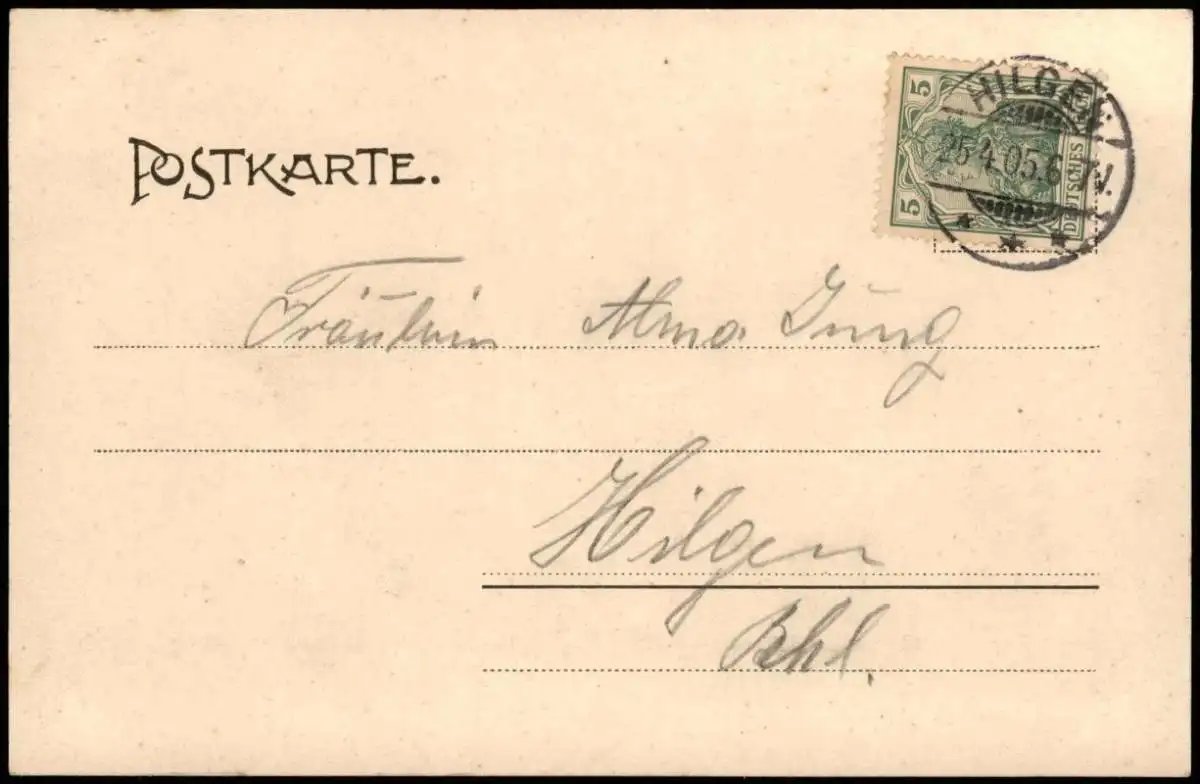 POSTKARTE.
HILGEN
25.4.05.6-7N.
5
5
DEUTSCHES
Fräulein Alma Jung
Hilgen
Rhl.